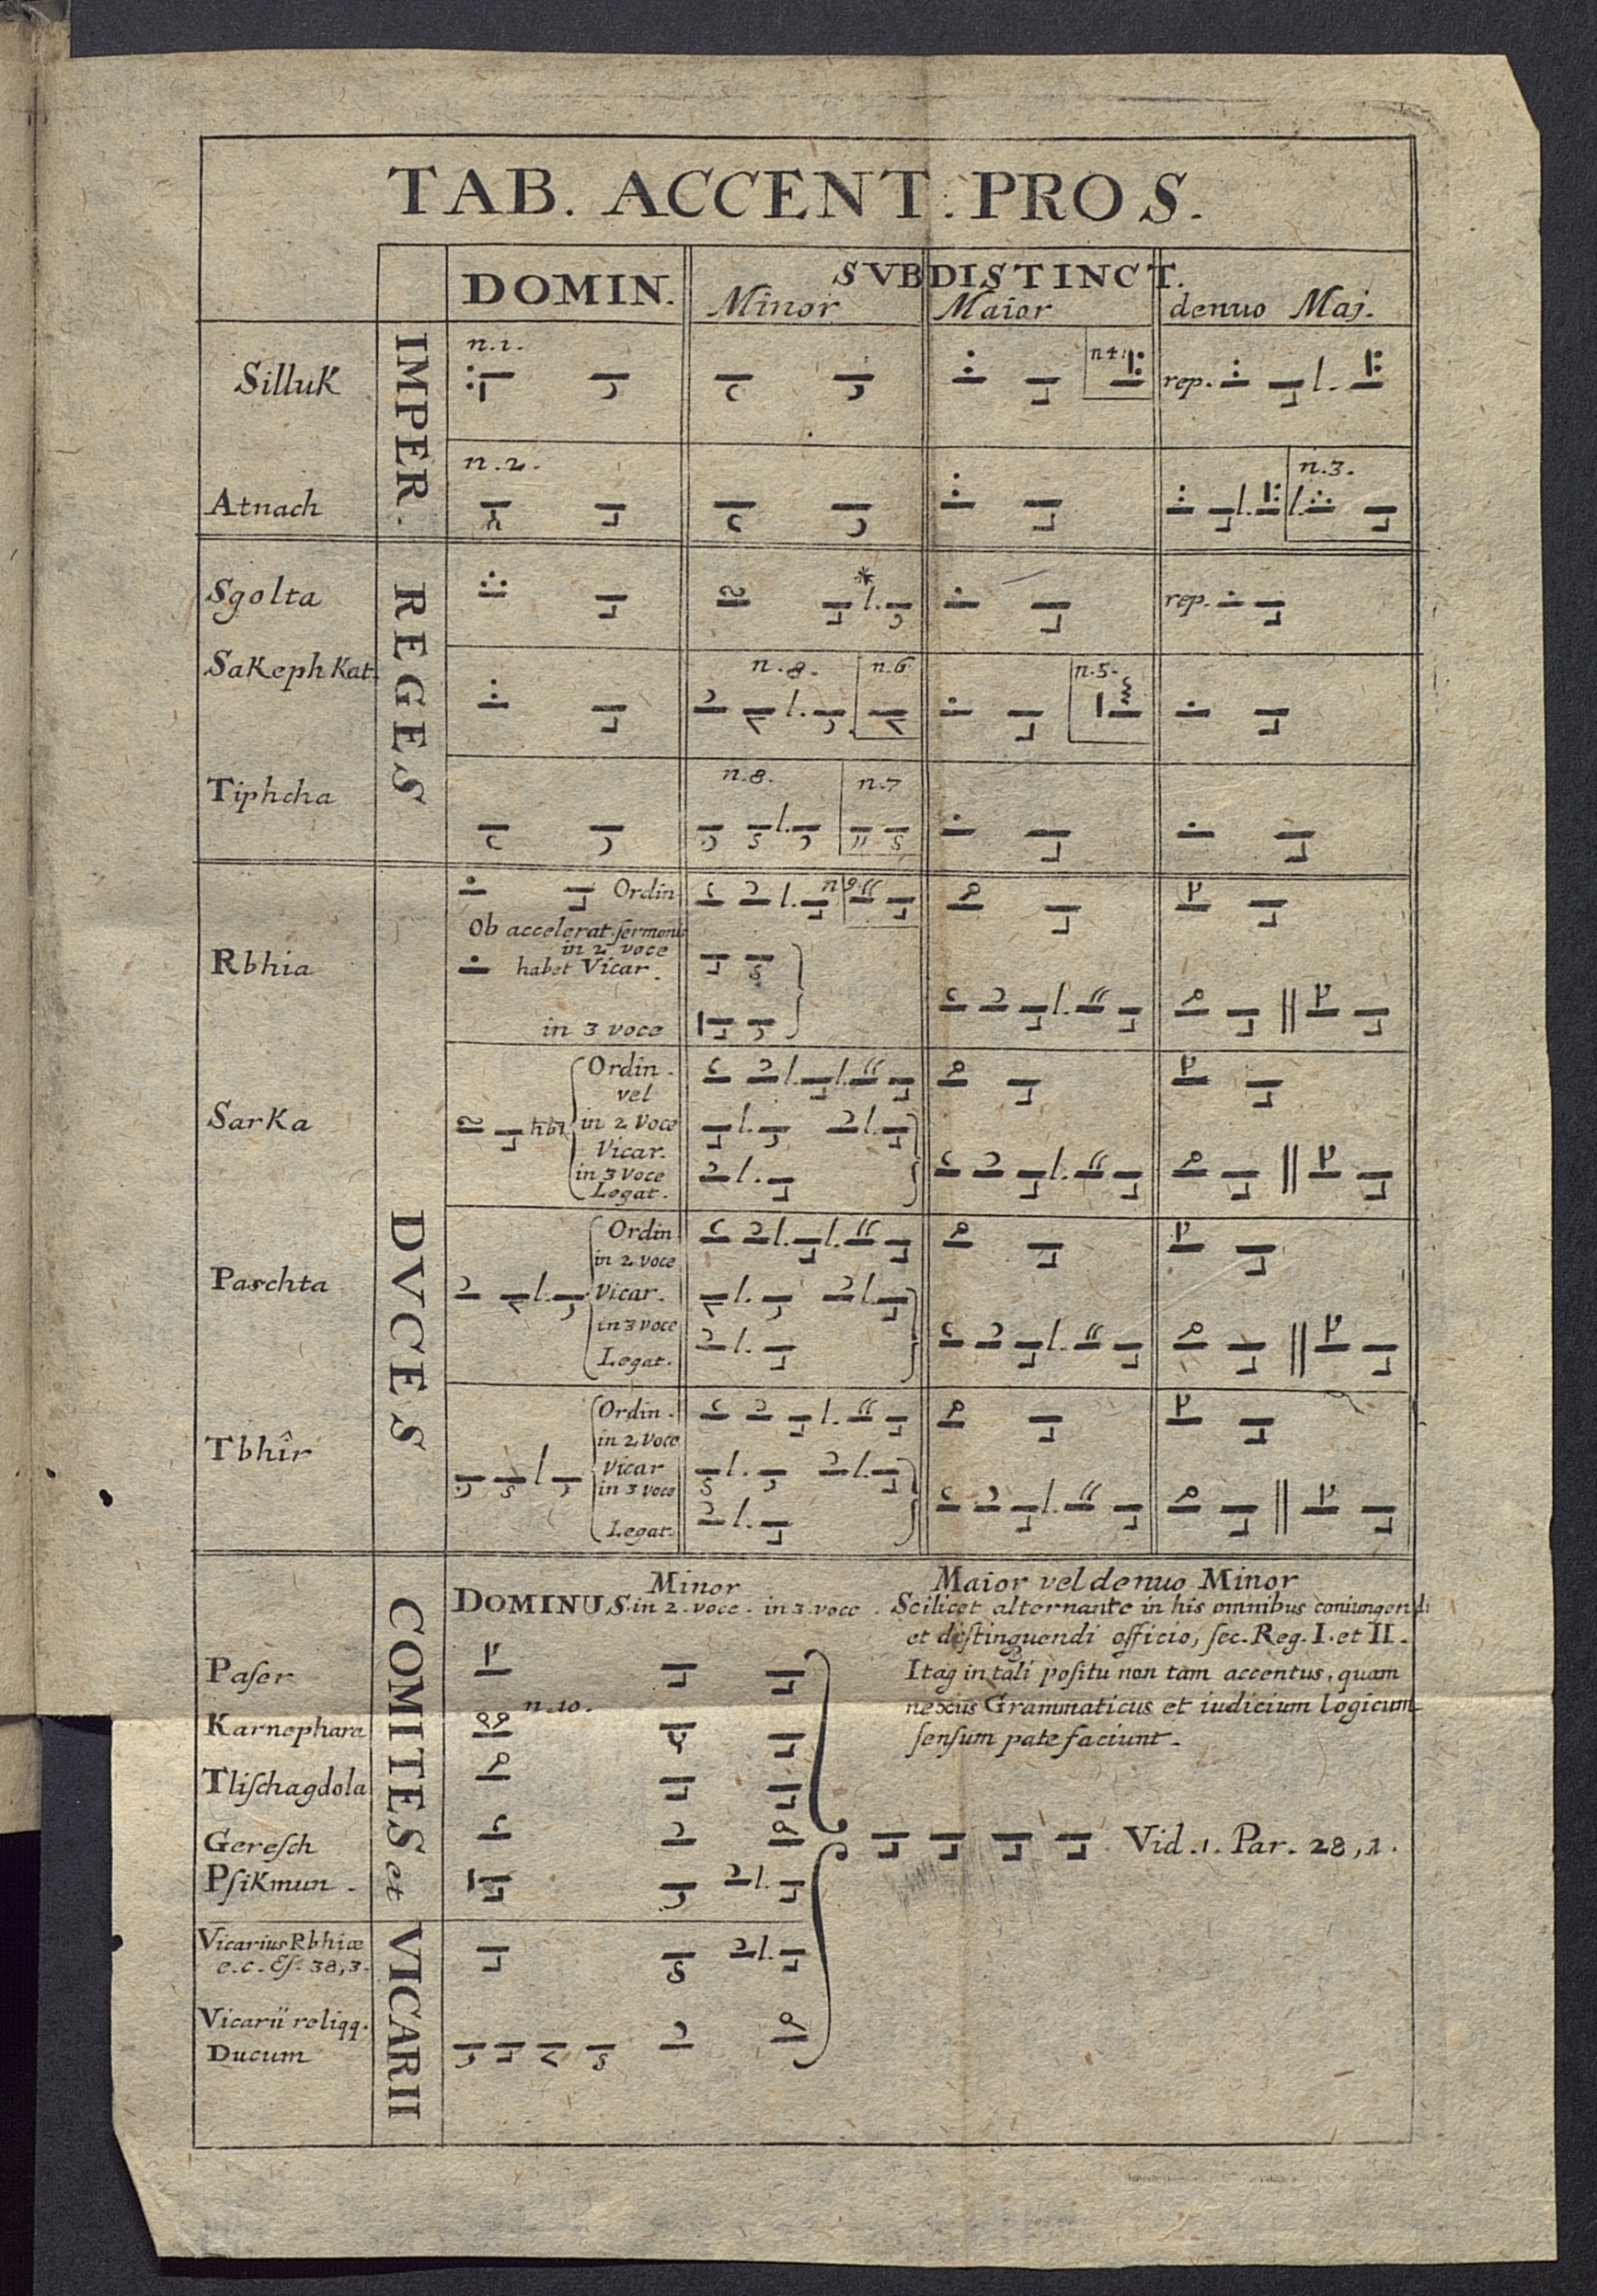 TAB. ACCENT. PROS.
DOMIN.
SVBDISTINCT.
Minor
Maior
denuo Maj.
IMPER.
Silluk
n.1.
n4.
rep.
l.
Atnach
n.2.
l.
n.3.
l.
REGES
Sgolta
*
l.
rep.
Sakeph Kat.
n.8.
l.
n.6
n.5.
Tiphcha
n.8.
l.
n.7
DVCES
Rbhia
Ordin
l.
n9
Ob accelerat. sermonis
in 2 voce
habet Vicar.
in 3 voce
l.
Sarka
Ordin.
vel
in 2 Voce
Vicar.
in 3 Voce
Legat.
l. l.
l. l.
l.
l.
Paschta
l.
Ordin
in 2 voce
Vicar.
in 3 voce
Legat.
l. l.
l. l.
l.
l.
Tbhîr
l
Ordin.
in 2 Voce
Vicar
in 3 voce
Legat.
l.
l. l.
l.
l.
COMITES et VICARII
Minor
DOMINUS. in 2. voce. in 3. voce.
Maior vel denuo Minor
Scilicet alternante in his omnibus coniungendi
et distinguendi officio, sec. Reg. I. et II.
Itaq in tali positu non tam accentus, quam
nexus Grammaticus et iudicium logicum
sensum patefaciunt.
Paser
Karnephara
n.10.
Tlischagdola
Geresch
Vid. 1. Par. 28, 1.
Psikmun.
l.
Vicarius Rbhiæ
e.c. Es. 38,3.
l.
Vicarii reliqq.
Ducum